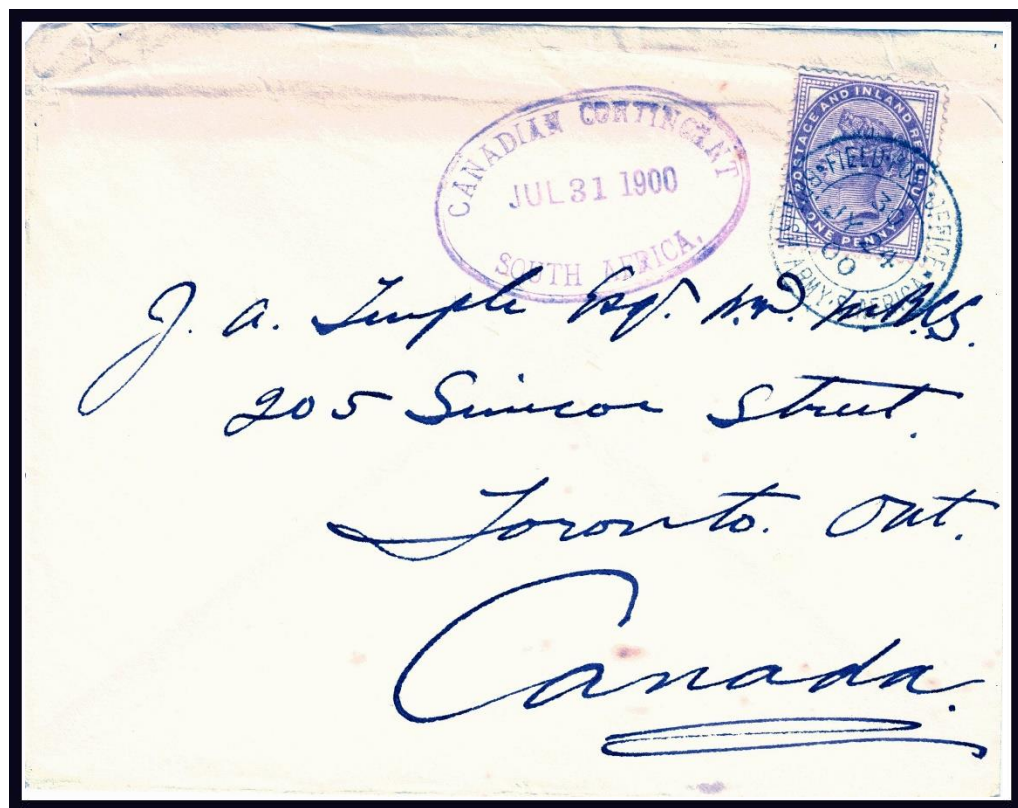 CANADIAN CONTINGENT
JUL 31 1900
SOUTH AFRICA.
POSTAGE AND INLAND REVENUE
ONE PENNY
FIELD POST OFFICE
ARMY S. AFRICA
JY 31
00
J. A. Temple Esqr. M.D. M.R.C.S.
205 Simcoe Street.
Toronto. Ont.
Canada.